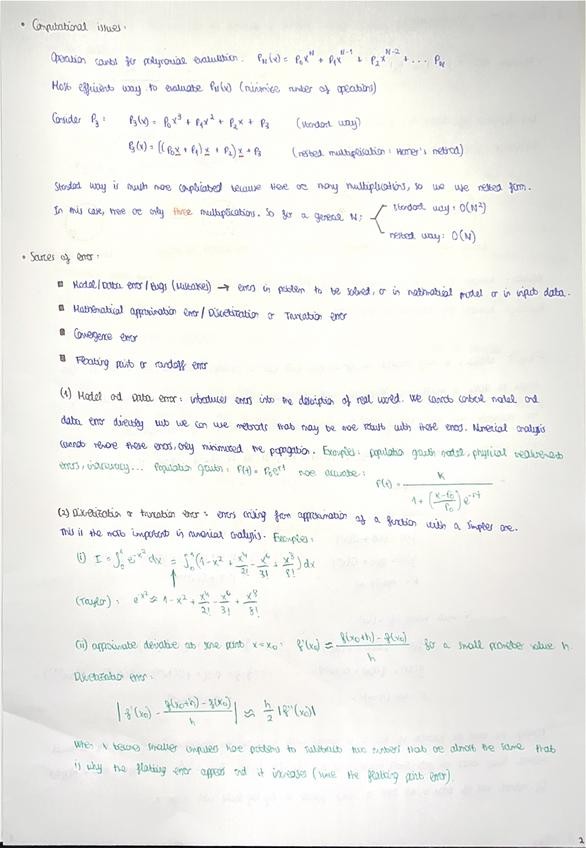 • Computational issues:
Operation counts for polynomial evaluation. Pₙ(x) = P₀xᴺ + P₁xᴺ⁻¹ + P₂xᴺ⁻² + ... Pₙ
Most efficient way to evaluate Pₙ(x) (minimise number of operations)
Consider P₃: P₃(x) = P₀x³ + P₁x² + P₂x + P₃ (standard way)
P₃(x) = [(P₀x + P₁)x + P₂)x + P₃ (nested multiplication: Horner's method)
Standard way is much more complicated because there are many multiplications, so we use nested form.
In this case, there are only three multiplications. So for a general N: standard way: O(N²)
nested way: O(N)
• Sources of error:
Model/Data error/Bugs (Mistakes) → errors in problem to be solved, or in mathematical model or in input data.
Mathematical approximation error/Discretization or Truncation error
Convergence error
Floating point or roundoff error
(1) Model and Data error: introduces errors into the description of real world. We cannot control model and
data error directly but we can use methods that may be more robust with these errors. Numerical analysis
cannot remove these errors, only minimized the propagation. Examples: population growth model, physical measurements
errors, inaccuracy... Population growth: P(t) = P₀eʳᵗ more accurate:
P(t) = K / (1 + ((K-P₀)/P₀) e⁻ʳᵗ)
(2) Discretization or truncation error: errors arising from approximation of a function with a simpler one.
This is the most important in numerical analysis. Examples:
(i) I = ∫₀¹ e^-x² dx = ∫₀¹ (1 - x² + x⁴/2! - x⁶/3! + x⁸/8!) dx
(Taylor): e^x² ≈ 1 - x² + x⁴/2! - x⁶/3! + x⁸/8!
(ii) approximate derivative at some point x = x₀: f'(x₀) ≈ (f(x₀+h) - f(x₀))/h for a small parameter value h.
Discretization error:
|f'(x₀) - (f(x₀+h) - f(x₀))/h| ≈ h/2 |f''(x₀)|
When h becomes smaller computers have problems to subtract two numbers that are almost the same that
is why the floating error appears and it increases (have the floating point error).
2